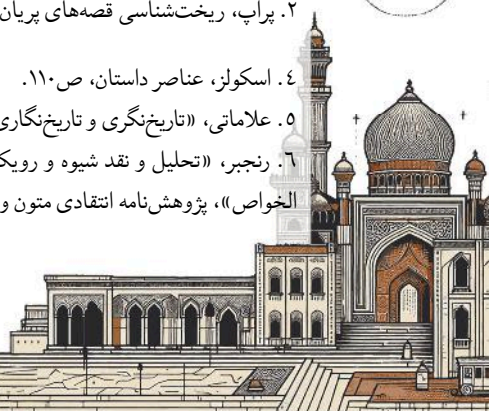 ۲. پراپ، ریخت‌شناسی قصه‌های پریان
۴. اسکولز، عناصر داستان، ص۱۱۰.
۵. علاماتی، «تاریخ‌نگری و تاریخ‌نگاری
۶. رنجبر، «تحلیل و نقد شیوه و رویک
الخواص»، پژوهش‌نامه انتقادی متون و